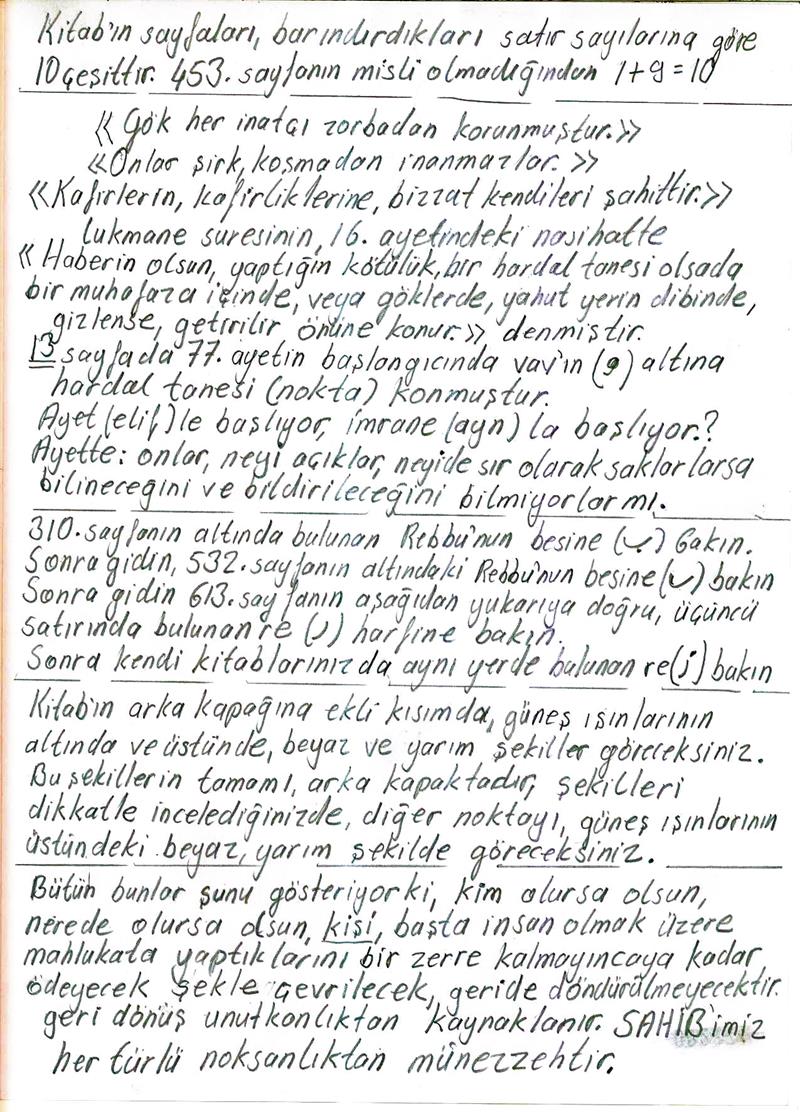 Kitab'ın sayfaları, barındırdıkları satır sayılarına göre
10 çeşittir. 453. sayfanın misli olmadığından 1+9=10
«Gök her inatçı zorbadan korunmuştur.»
«Onlar şirk, koşmadan inanmazlar.»
«Kafirlerin, kafirliklerine, bizzat kendileri şahittir.»
Lukmane suresinin, 16. ayetindeki nasihatte
«Haberin olsun, yaptığın kötülük, bir hardal tanesi olsada
bir muhafaza içinde, veya göklerde, yahut yerin dibinde,
gizlense, getirilir önüne konur.» denmiştir.
13 sayfada 77. ayetin başlangıcında vav'ın (و) altına
hardal tanesi (nokta) konmuştur.
Ayet (elif)le başlıyor, imrane (ayn) la başlıyor.?
Ayette: onlar, neyi açıklar, neyide sır olarak saklarlarsa
bilineceğini ve bildirileceğini bilmiyorlar mı.
310. sayfanın altında bulunan Rebbu'nun besine (ب) bakın.
Sonra gidin, 532. sayfanın altındaki Rebbu'nun besine (ب) bakın
Sonra gidin 613. sayfanın aşağıdan yukarıya doğru, üçüncü
satırında bulunan re (ر) harfine bakın.
Sonra kendi kitablarınızda aynı yerde bulunan re(ز) bakın
Kitab'ın arka kapağına ekli kısımda, güneş ışınlarının
altında ve üstünde, beyaz ve yarım şekiller göreceksiniz.
Bu şekillerin tamamı, arka kapaktadır, şekilleri
dikkatle incelediğinizde, diğer noktayı, güneş ışınlarının
üstündeki beyaz, yarım şekilde göreceksiniz.
Bütün bunlar şunu gösteriyor ki, kim olursa olsun,
nerede olursa olsun, kişi, başta insan olmak üzere
mahlukata yaptıklarını bir zerre kalmayıncaya kadar
ödeyecek şekle çevrilecek, geride döndürülmeyecektir.
geri dönüş unutkanlıktan kaynaklanır. SAHİB'imiz
her türlü noksanlıktan münezzehtir.